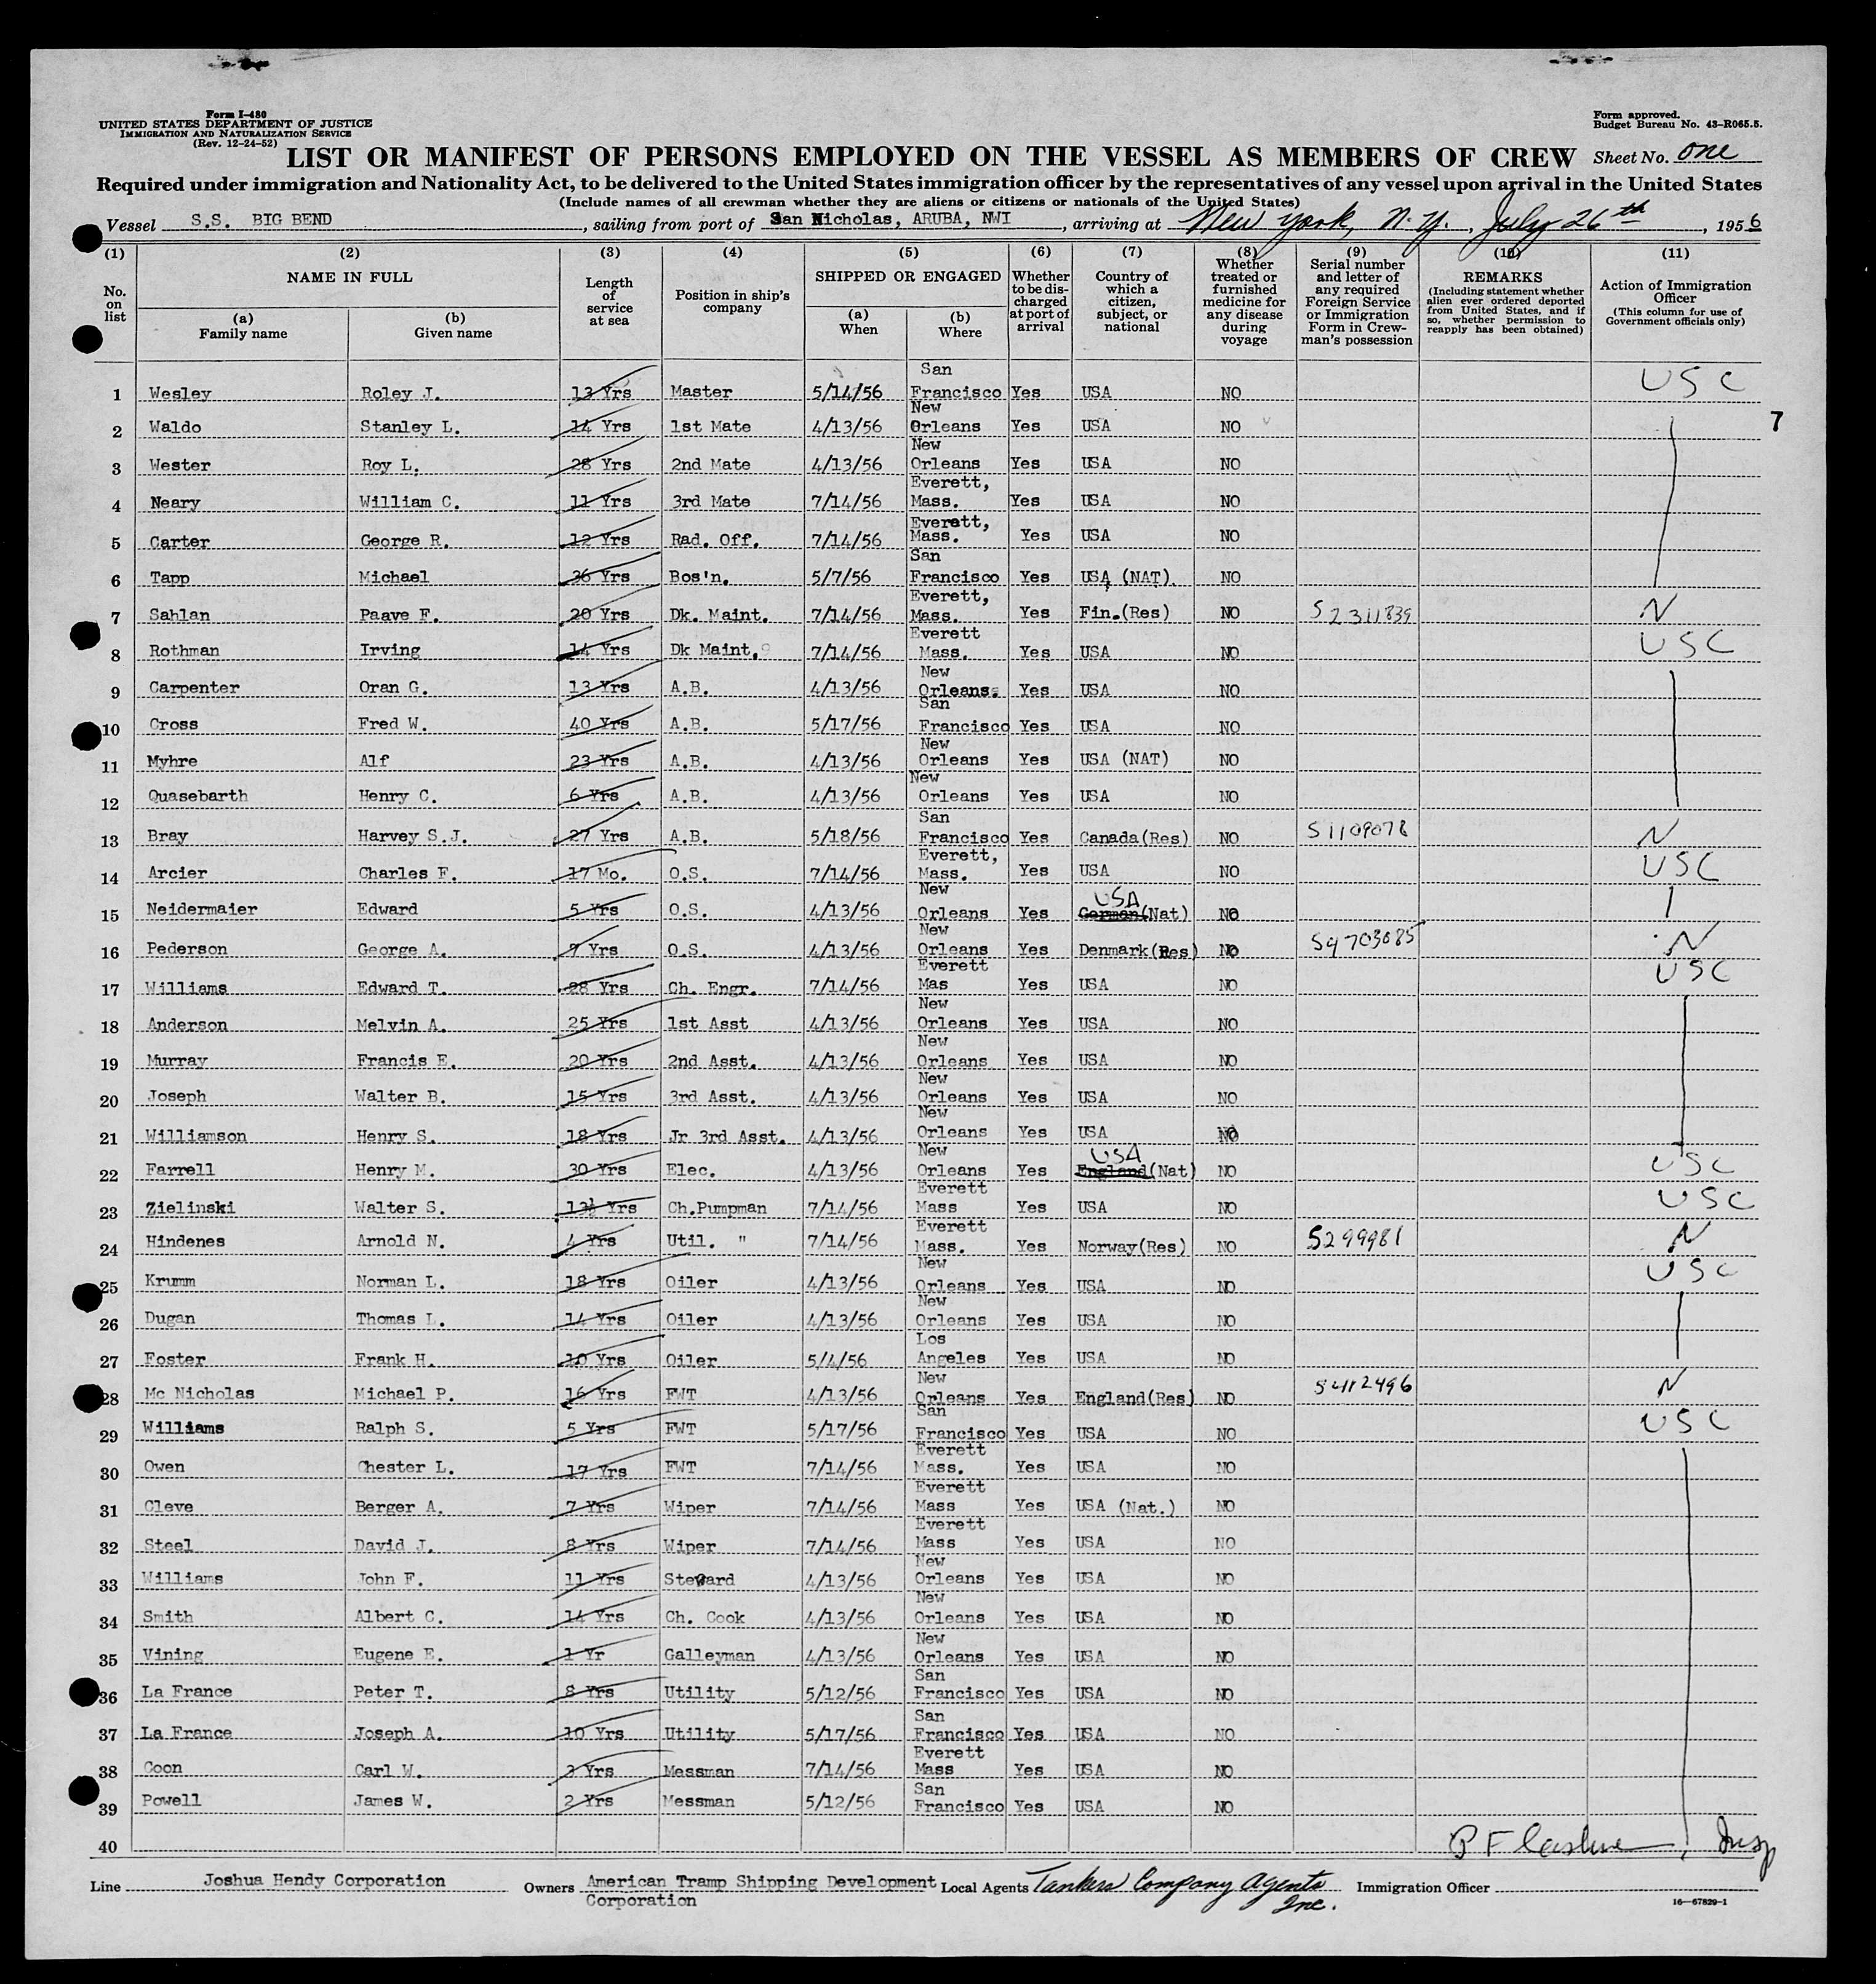 Form I-480
UNITED STATES DEPARTMENT OF JUSTICE
IMMIGRATION AND NATURALIZATION SERVICE
(Rev. 12-24-52)
Form approved.
Budget Bureau No. 43-R065.5.
LIST OR MANIFEST OF PERSONS EMPLOYED ON THE VESSEL AS MEMBERS OF CREW Sheet No. one
Required under immigration and Nationality Act, to be delivered to the United States immigration officer by the representatives of any vessel upon arrival in the United States
(Include names of all crewman whether they are aliens or citizens or nationals of the United States)
Vessel S.S. BIG BEND, sailing from port of San Nicholas, ARUBA, NWI, arriving at New York, N.Y., July 26th, 1956
(1) (2) (3) (4) (5) (6) (7) (8) (9) (10) (11)
No. on list
NAME IN FULL
(a) Family name
(b) Given name
Length of service at sea
Position in ship's company
SHIPPED OR ENGAGED
(a) When
(b) Where
Whether to be discharged at port of arrival
Country of which a citizen, subject, or national
Whether treated or furnished medicine for any disease during voyage
Serial number and letter of any required Foreign Service or Immigration Form in Crewman's possession
REMARKS
(Including statement whether alien ever ordered deported from United States, and if so, whether permission to reapply has been obtained)
Action of Immigration Officer
(This column for use of Government officials only)
1 Wesley Roley J. 13 Yrs Master 5/14/56 San Francisco Yes USA NO USC
2 Waldo Stanley L. 14 Yrs 1st Mate 4/13/56 New Orleans Yes USA NO
7
3 Wester Roy L. 28 Yrs 2nd Mate 4/13/56 New Orleans Yes USA NO
4 Neary William C. 11 Yrs 3rd Mate 7/14/56 Everett, Mass. Yes USA NO
5 Carter George R. 12 Yrs Rad. Off. 7/14/56 Everett, Mass. Yes USA NO
6 Tapp Michael 36 Yrs Bos'n. 5/7/56 San Francisco Yes USA (NAT). NO
7 Sahlan Paave F. 20 Yrs Dk. Maint. 7/14/56 Everett, Mass. Yes Fin.(Res) NO S2311839 N
8 Rothman Irving 14 Yrs Dk Maint. 7/14/56 Everett Mass. Yes USA NO USC
9 Carpenter Oran G. 13 Yrs A.B. 4/13/56 New Orleans. Yes USA NO
10 Cross Fred W. 40 Yrs A.B. 5/17/56 San Francisco Yes USA NO
11 Myhre Alf 23 Yrs A.B. 4/13/56 New Orleans Yes USA (NAT) NO
12 Quasebarth Henry C. 6 Yrs A.B. 4/13/56 New Orleans Yes USA NO
13 Bray Harvey S.J. 27 Yrs A.B. 5/18/56 San Francisco Yes Canada(Res) NO S1109078 N
14 Arcier Charles F. 17 Mo. O.S. 7/14/56 Everett, Mass. Yes USA NO USC
15 Neidermaier Edward 5 Yrs O.S. 4/13/56 New Orleans Yes USA German(Nat) NO
16 Pederson George A. 7 Yrs O.S. 4/13/56 New Orleans Yes Denmark(Res) NO S9703085 N
17 Williams Edward T. 28 Yrs Ch. Engr. 7/14/56 Everett Mas Yes USA NO USC
18 Anderson Melvin A. 25 Yrs 1st Asst 4/13/56 New Orleans Yes USA NO
19 Murray Francis E. 20 Yrs 2nd Asst. 4/13/56 New Orleans Yes USA NO
20 Joseph Walter B. 15 Yrs 3rd Asst. 4/13/56 New Orleans Yes USA NO
21 Williamson Henry S. 18 Yrs Jr 3rd Asst. 4/13/56 New Orleans Yes USA NO
22 Farrell Henry M. 30 Yrs Elec. 4/13/56 New Orleans Yes USA England(Nat) NO USC
23 Zielinski Walter S. 13½ Yrs Ch.Pumpman 7/14/56 Everett Mass Yes USA NO USC
24 Hindenes Arnold N. 4 Yrs Util. " 7/14/56 Everett Mass. Yes Norway(Res) NO S299981 N
25 Krumm Norman L. 18 Yrs Oiler 4/13/56 New Orleans Yes USA NO USC
26 Dugan Thomas L. 14 Yrs Oiler 4/13/56 New Orleans Yes USA NO
27 Foster Frank H. 10 Yrs Oiler 5/4/56 Los Angeles Yes USA NO
28 Mc Nicholas Michael P. 16 Yrs FWT 4/13/56 New Orleans Yes England(Res) NO S4112496 N
29 Williams Ralph S. 5 Yrs FWT 5/17/56 San Francisco Yes USA NO USC
30 Owen Chester L. 17 Yrs FWT 7/14/56 Everett Mass. Yes USA NO
31 Cleve Berger A. 7 Yrs Wiper 7/14/56 Everett Mass Yes USA (Nat.) NO
32 Steel David J. 8 Yrs Wiper 7/14/56 Everett Mass Yes USA NO
33 Williams John F. 11 Yrs Steward 4/13/56 New Orleans Yes USA NO
34 Smith Albert C. 14 Yrs Ch. Cook 4/13/56 New Orleans Yes USA NO
35 Vining Eugene E. 1 Yr Galleyman 4/13/56 New Orleans Yes USA NO
36 La France Peter T. 8 Yrs Utility 5/12/56 San Francisco Yes USA NO
37 La France Joseph A. 10 Yrs Utility 5/17/56 San Francisco Yes USA NO
38 Coon Carl W. 3 Yrs Messman 7/14/56 Everett Mass Yes USA NO
39 Powell James W. 2 Yrs Messman 5/12/56 San Francisco Yes USA NO
40 P F Insp
Line Joshua Hendy Corporation Owners American Tramp Shipping Development Corporation Local Agents Tankers Company Agents Inc. Immigration Officer
16—67829-1